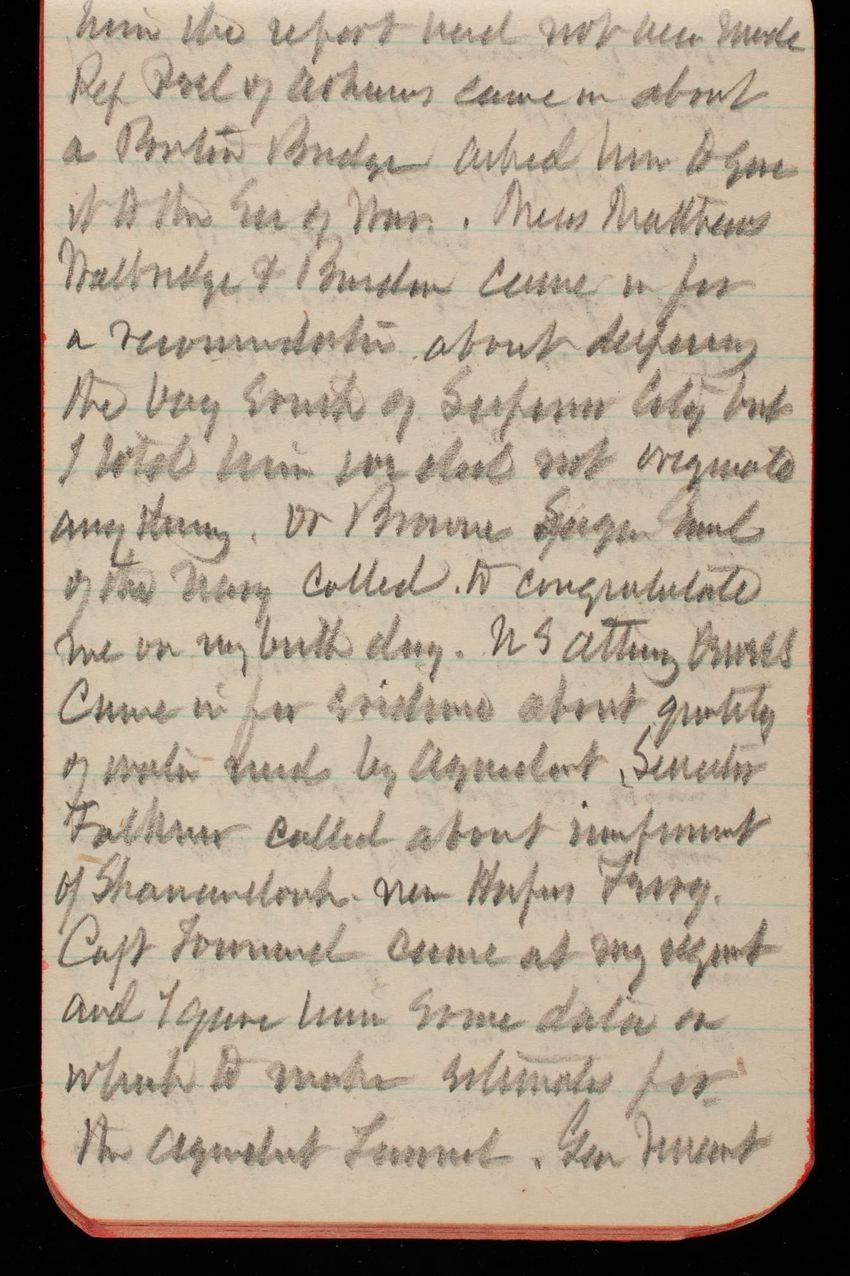 him the report had not been made
Rep Peel of Arkansas came in about
a Ponton Bridge asked him to give
it to the Sec of War. Mess Matthews
Walbridge & Burdon came in for
a recomendation about deepening
the bay South of Superior City but
I told him we did not originate
any thing. Dr Browne Surgeon Genl
of the Navy called to congratulate
me on my birth day. U S attorney
Came in for evidence about quantity
of water used by Aqueduct. Senator
Falkner called about improvment
of Shanandoah near Harpers Ferry.
Capt Townsend came at my request
and I gave him some data on
which to make estimates for
the Aqueduct Tunnel. Gen Vincent